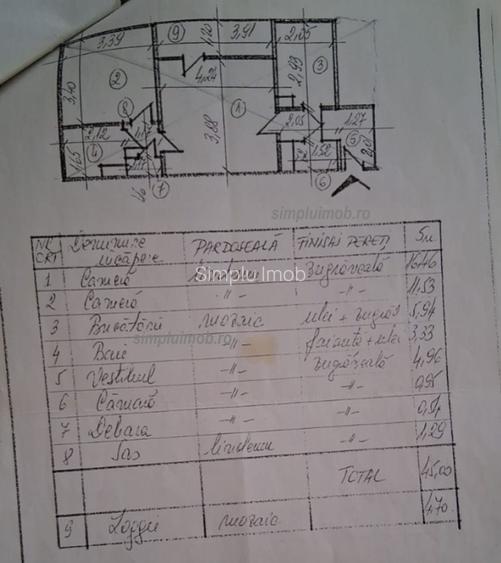 3,39
⑨
1,20
3,91
2,05
②
3,40
4,24
2,93
③
①
⑧
3,88
2,05
1,27
2,12
④
1,65
1,52
⑤
⑦
⑥
simpluimob.ro
NR. CRT Denumire încăpere PARDOSEALĂ FINISAJ PEREȚI Su
1 Cameră zugrăveală 16,46
2 Cameră -"- -"- 11,53
3 Bucătărie mozaic ulei + zugrăv 5,94
4 Baie -"- faianță + ulei 3,33
5 Vestibul -"- zugrăveală 4,96
6 Cămară -"- -"- 0,95
7 Debara -"- -"- 0,54
8 Sas linoleum -"- 1,29
TOTAL 45,00
9 Loggie mozaic 4,70
Simplu Imob
simpluimob.ro